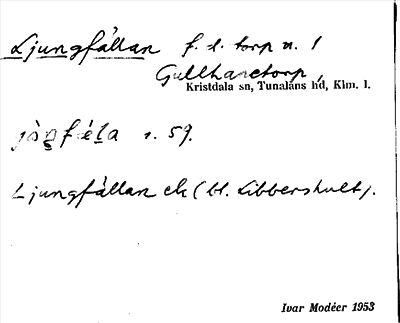 Ljungfällan f. l. torp u. 1
Gullhanetorp,
Kristdala sn, Tunaläns hd, Klm. l.
s. 59.
Ljungfällan ek (bl. Libbershult).
Ivar Modéer 1953